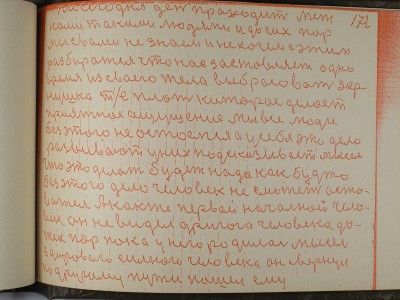 на сегодня ден праходит меж
нами такими людями и до сех пор
мы сами не знаем и не хочем с этим
разбиратся что нас заставляет одно
время из своего тела выбрасоват зер-
нушко т/е плот каторое делает
приятное ощущение мы все люди
без этого не остаемся а у себя это дело
развивают у них подсказывает мысел
что это делат будет нада как будто
без этого дело человек не сможет оста-
ватся А как же первай началной чело-
век он не видел другога человека до-
тех пор пока у него родилас мысел
здоровага силнога человека он свернул
по другому пути пошел ему
172